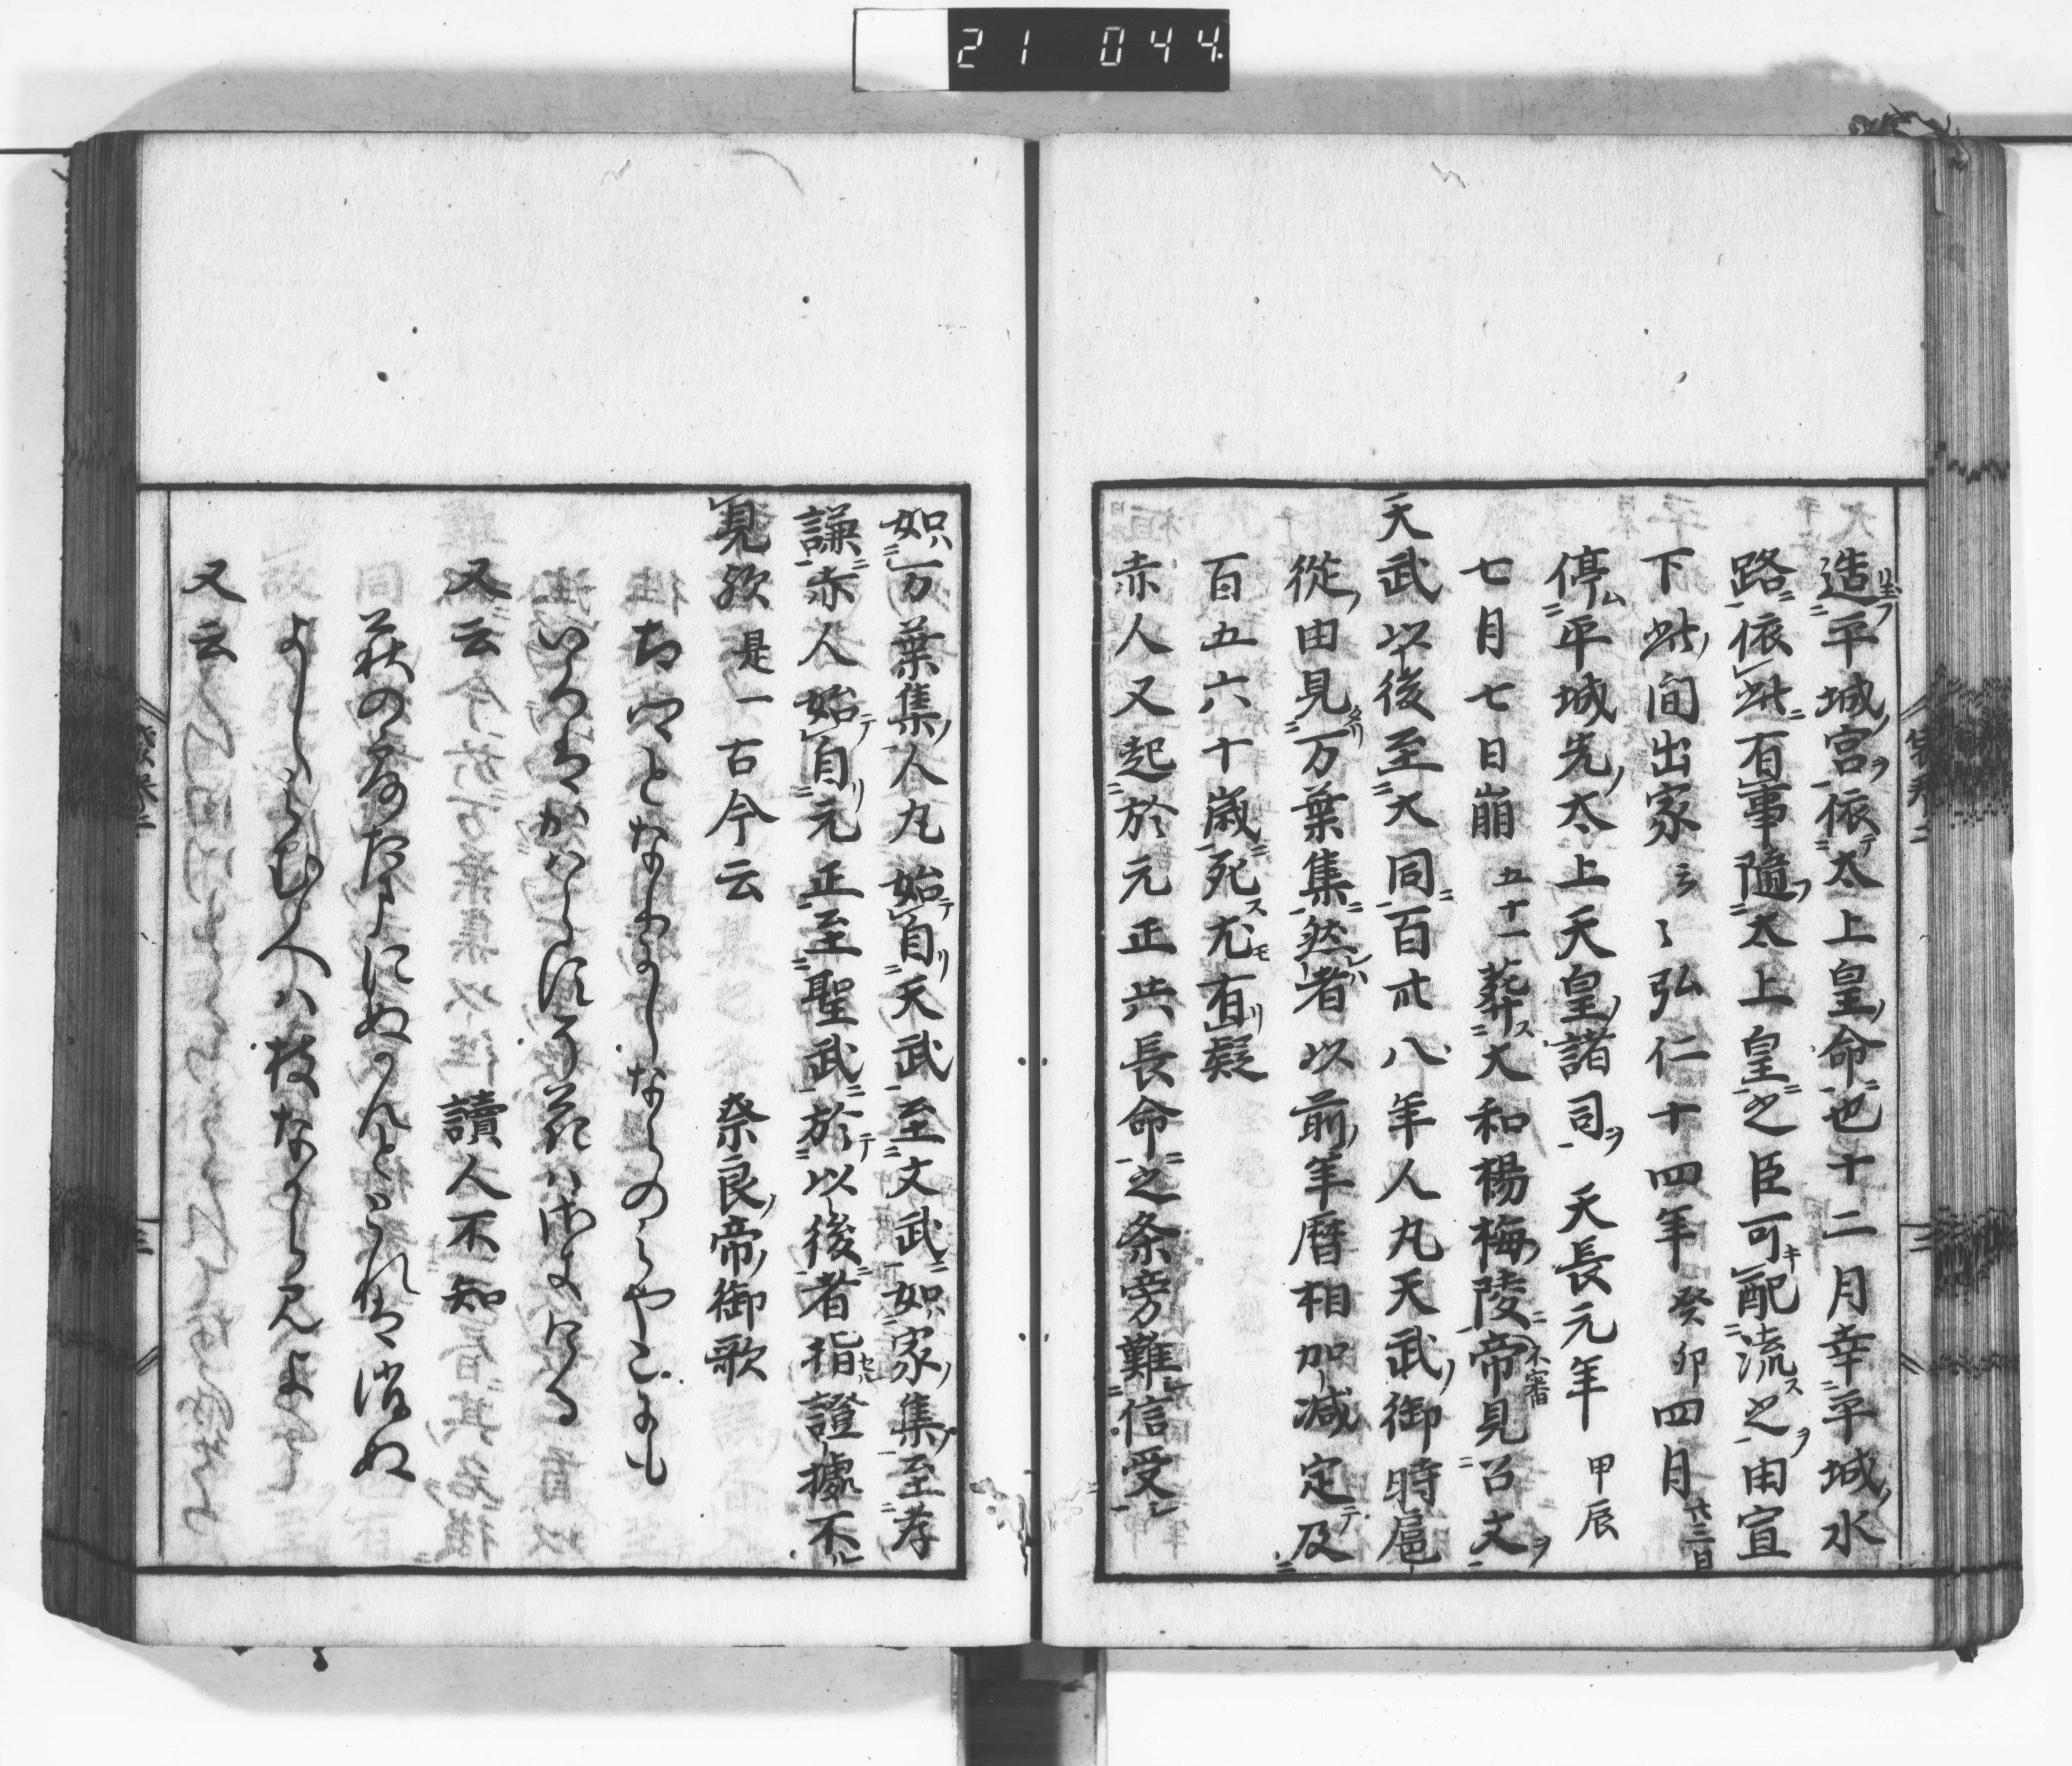 21 044
造平城宮依太上皇命也十二月幸平城水
路依此有事隨太上皇之臣可配流之由宣
下此間出家云々弘仁十四年癸卯四月廿三日
停平城先太上天皇諸司天長元年甲辰
七月七日崩五十一葬大和楊梅陵帝見召文不審
天武以後至大同百廿八年人丸天武御時扈
從由見万葉集然者以前年暦相加減定及
百五六十歳死尤有疑
赤人又起於元正共長命之条旁難信受
如万葉集人丸始自天武至文武如家集至孝
謙赤人始自元正至聖武於以後者指證據不
見歟是一古今云 奈良帝御歌
ふるさととなりにしならのみやこにも
いろはかはらす花はさきけり
又云 讀人不知
萩の露たまにぬかんととれは消ぬ
よしみむ人は枝なからみよ
又云